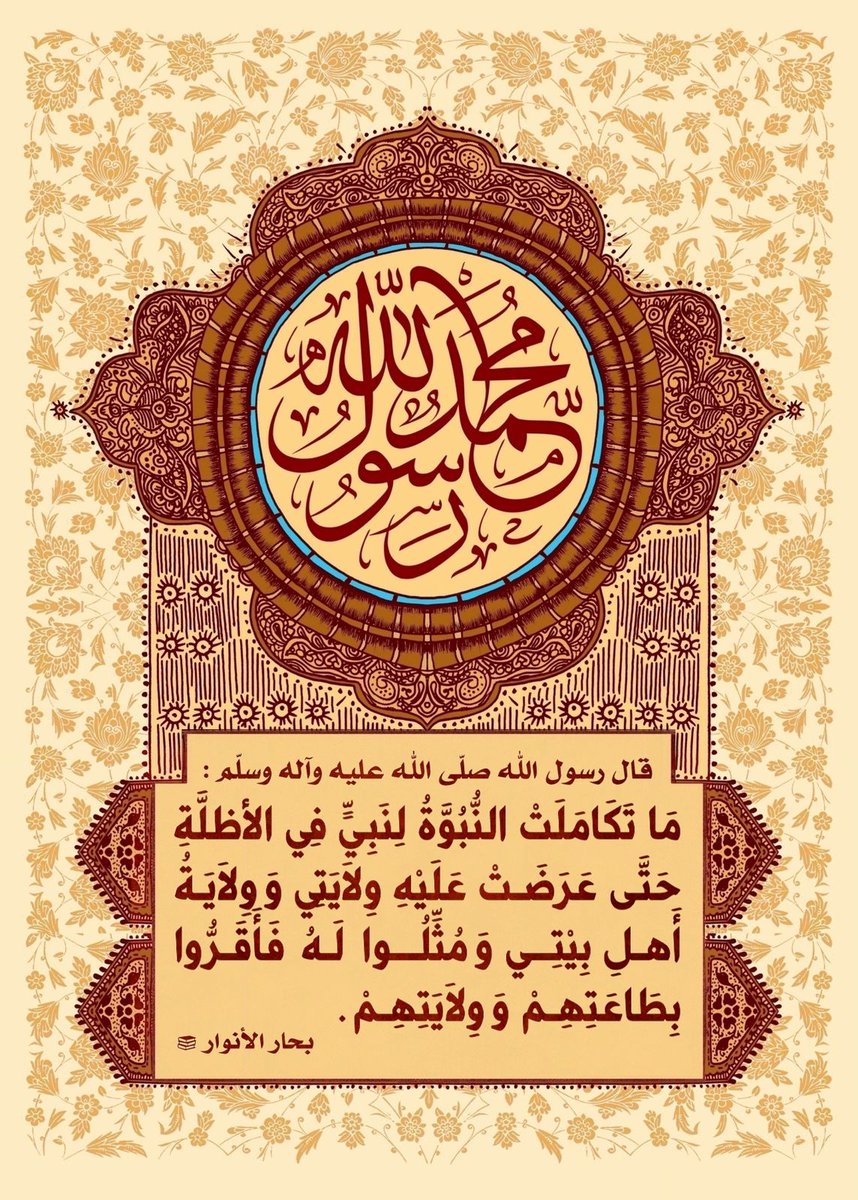 محمد رسول الله
قال رسول الله صلّى الله عليه وآله وسلّم :
مَا تَكَامَلَتْ النُّبُوَّةُ لِنَبِيٍّ فِي الأظلَّةِ
حَتَّى عَرَضَتْ عَلَيْهِ وِلاَيَتِي وَوِلاَيَةُ
أَهلِ بِيْتِـي وَمُثِّلُـوا لَـهُ فَأَقَـرُّوا
بِطَاعَتِهِـمْ وَوِلاَيَتِهِـمْ.
بحار الأنوار